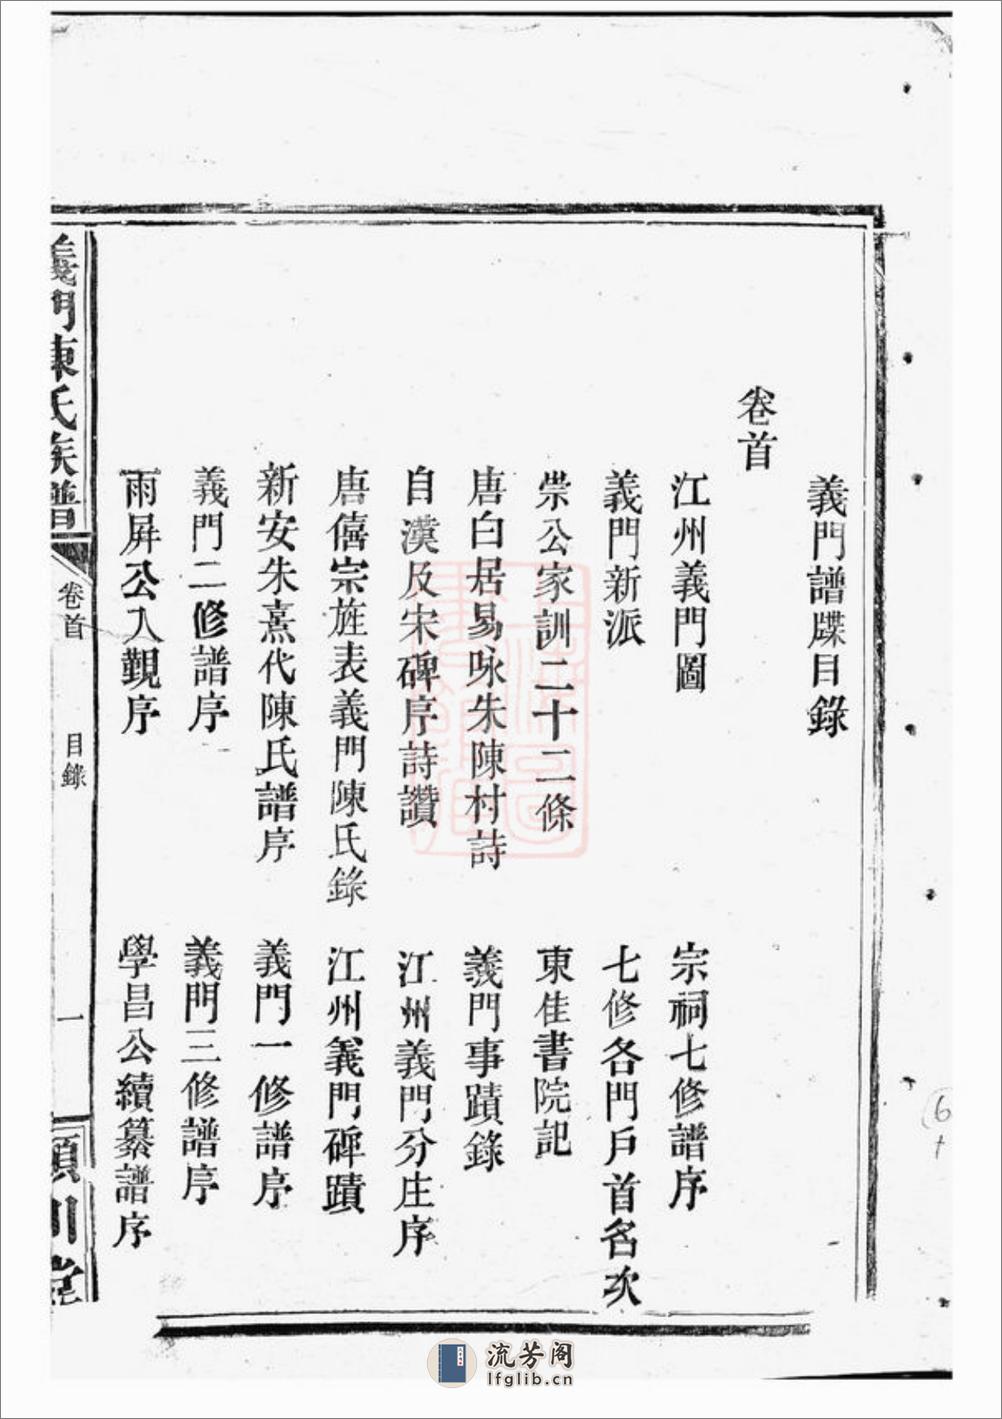 義門譜牒目錄
卷首
江州義門圖 宗祠七修譜序
義門新派 七修各門戶首名次
崇公家訓二十二條 東佳書院記
唐白居易咏朱陳村詩 義門事蹟錄
自漢及宋碑序詩讚 江州義門分庄序
唐僖宗旌表義門陳氏錄 江州義門碑蹟
新安朱熹代陳氏譜序 義門一修譜序
義門二修譜序 義門三修譜序
雨屏公入覲序 學昌公續纂譜序
義門陳氏族譜 卷首 目錄 一 潁川堂
6
流芳阁
lfglib.cn